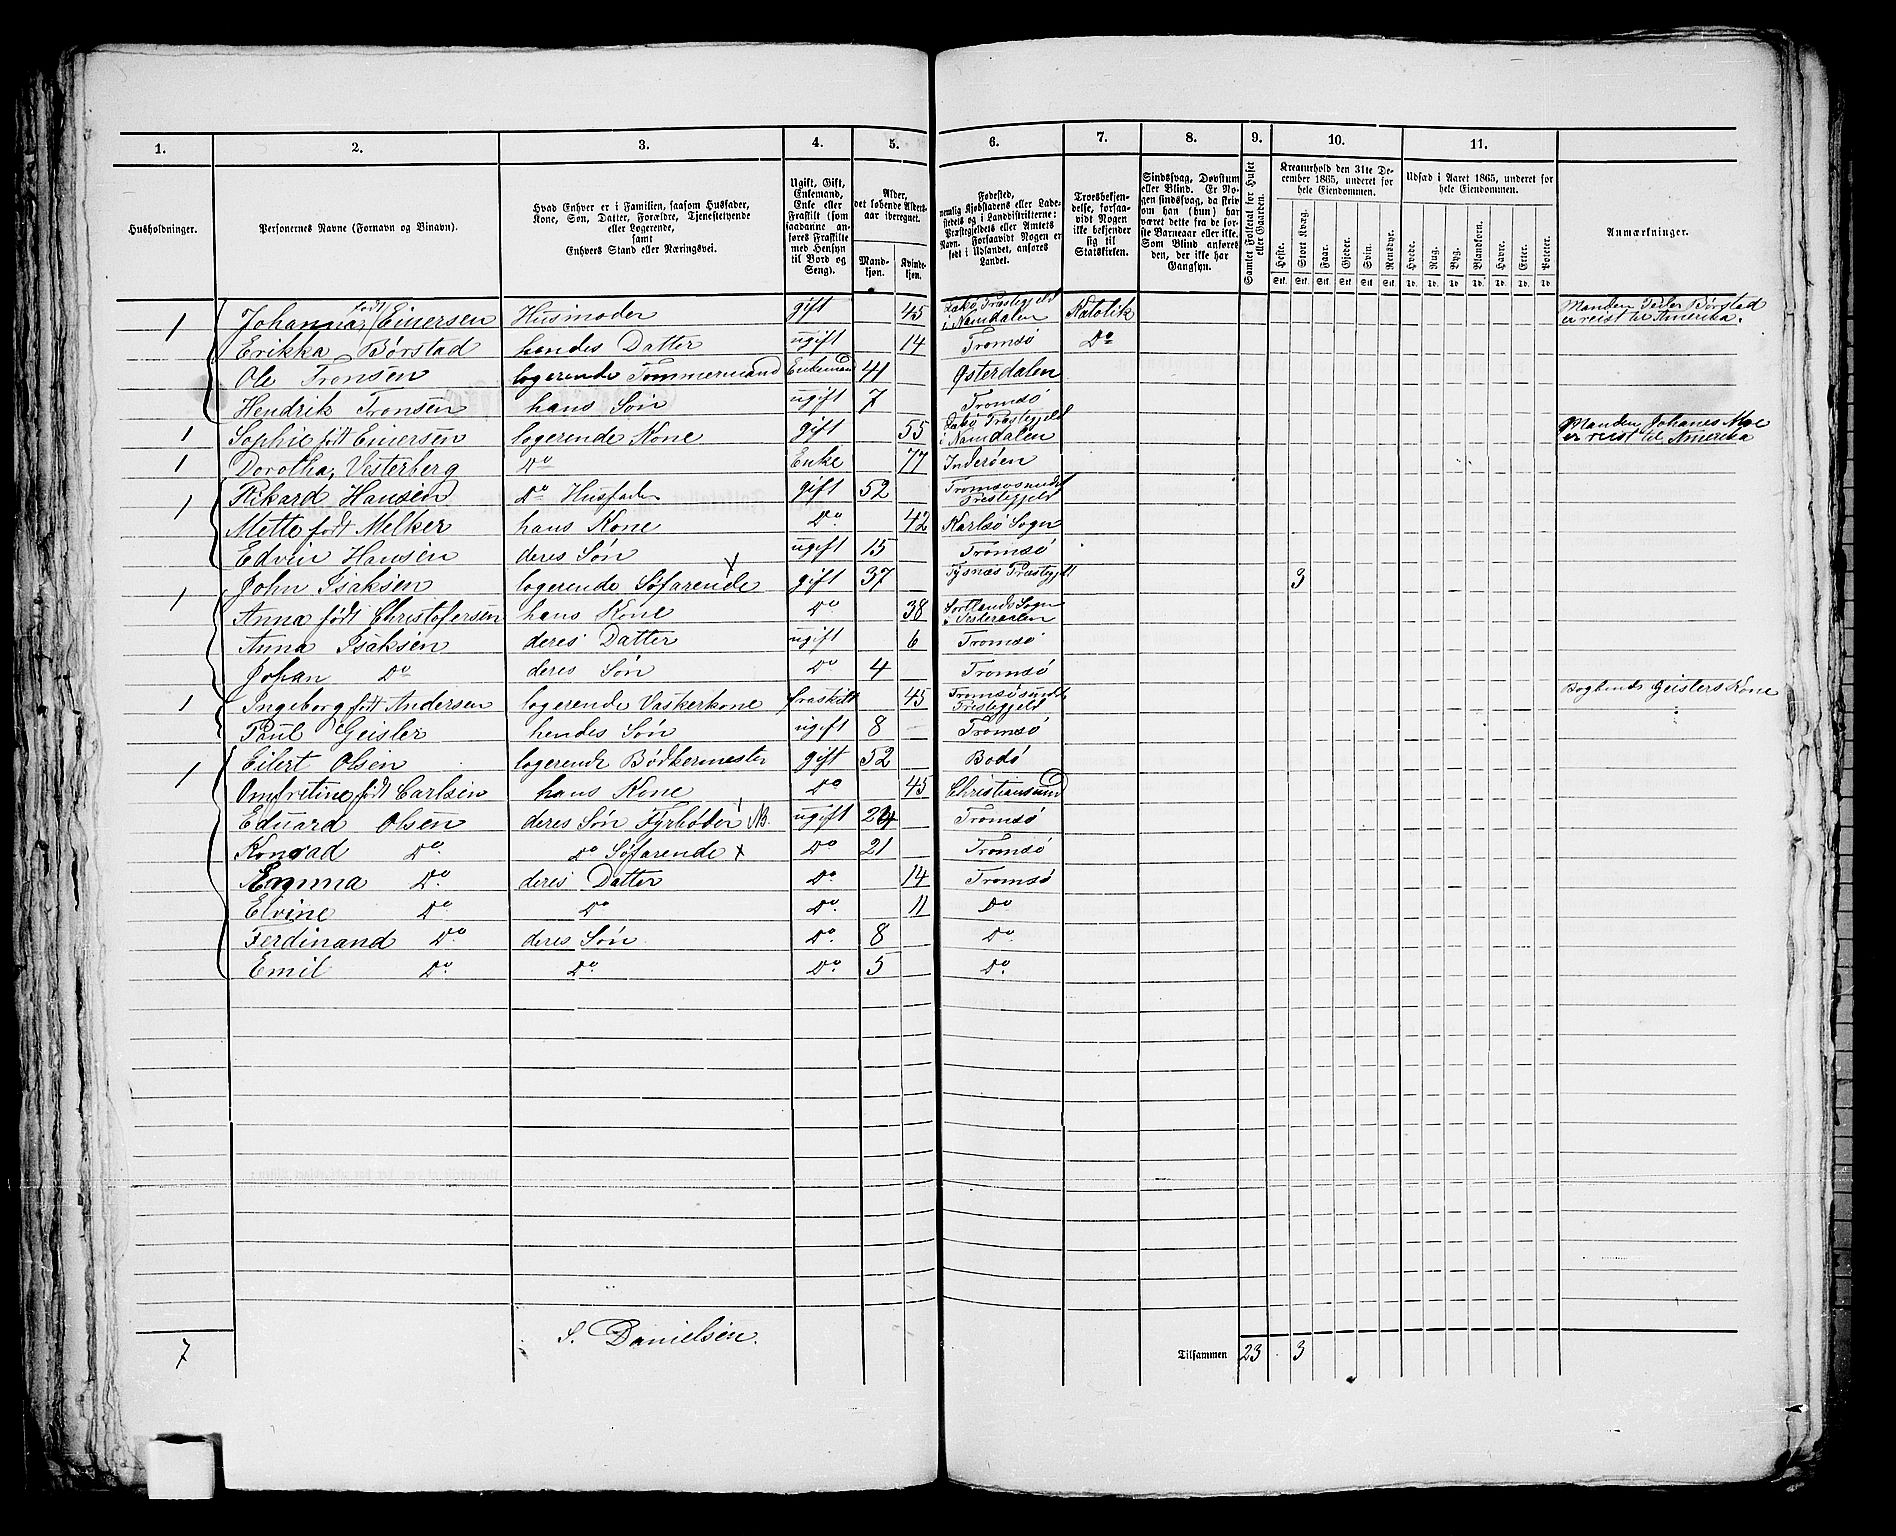 1. 2. 3. 4. 5. 6. 7. 8. 9. 10. 11.
Husholdninger.
Personernes Navne (Fornavn og Binavn).
Hvad Enhver er i Familien, saasom Husfader, Kone, Søn, Datter, Forældre, Tjenestetyende eller Logerende, samt Enhvers Stand eller Næringsvei.
Ugift, Gift, Enkemand, Enke eller Fraskilt (som saadanne anføres Fraskilte med Hensyn til Bord og Seng).
Alder, det løbende Aldersaar iberegnet.
Mandkjøn. Kvindekjøn.
Fødested, nemlig Kjøbstadens eller Ladestedets og i Landdistrikterne: Præstegjeldets eller Amtets Navn. Forsaavidt Nogen er født i Udlandet, anføres Landet.
Troesbekjendelse, forsaavidt Nogen ikke bekjender sig til Statskirken.
Sindssvag, Døvstum eller Blind. Er Nogen sindssvag, da skrives om han (hun) har været dette fra de første Barneaar eller ikke. Som Blind anføres den, der ikke har Gangsyn.
Samlet Folketal for Huset eller Gaarden.
Kreaturhold den 31te December 1865, underet for hele Eiendommen.
Heste. Stort Kvæg. Faar. Gjeder. Svin. Rensdyr.
Udsæd i Aaret 1865, underet for hele Eiendommen.
Hvede. Rug. Byg. Blandkorn. Havre. Erter. Poteter.
Anmærkninger.
1 Johanna født Einersen Husmoder gift 45 Præstegjeld i Namdalen Katolik Manden Børstad er reist til Amerika.
Erikka Børstad hendes Datter ugift 14 Tromsø Do
Ole Tronsen logerende Tømmermand Enkemand 41 Østerdalen
Hendrik Tronsen hans Søn ugift 7 Tromsø
1 Sophie født Einersen logerende Kone gift 55 Præstegjeld i Namdalen Manden Johanes Moe er reist til Amerika
1 Dorotha, Vesterberg Do Enke 77 Inderøen
1 Rikard Hansen Do Husfader gift 52 Tromsøsundet Prestegjeld
Mette født Melker hans Kone Do 42 Karlsø Sogn
Edvin Hansen deres Søn ugift 15 Tromsø
1 John Isaksen logerende Søfarende x gift 37 Tysnæs Præstegjeld 3
Anna født Christofersen hans Kone Do 38 Sortlands Sogn Vesteraalen
Anna Isaksen deres Datter ugift 6 Tromsø
Johan Do deres Søn Do 4 Tromsø
1 Ingeborg født Andersen logerende Vaskerkone fraskilt 45 Tromsøsundet Prestegjeld Geislers Kone
Paul Geisler hendes Søn ugift 8 Tromsø
1 Eilert Olsen logerende Bødkermester gift 52 Bodø
født Carlsen hans Kone Do 45 Christiansund
Eduard Olsen deres Søn Fyrbøder ugift 24 Tromsø
Konrad Do. Do Søfarende x Do 21 Tromsø
Emma Do. deres Datter Do. 14 Tromsø
Elvine Do. Do Do. 11 Do
Ferdinand Do. deres Søn Do. 8 Do.
Emil Do. Do. Do. 5 Do.
S. Danielsen.
7 Tilsammen 23 3